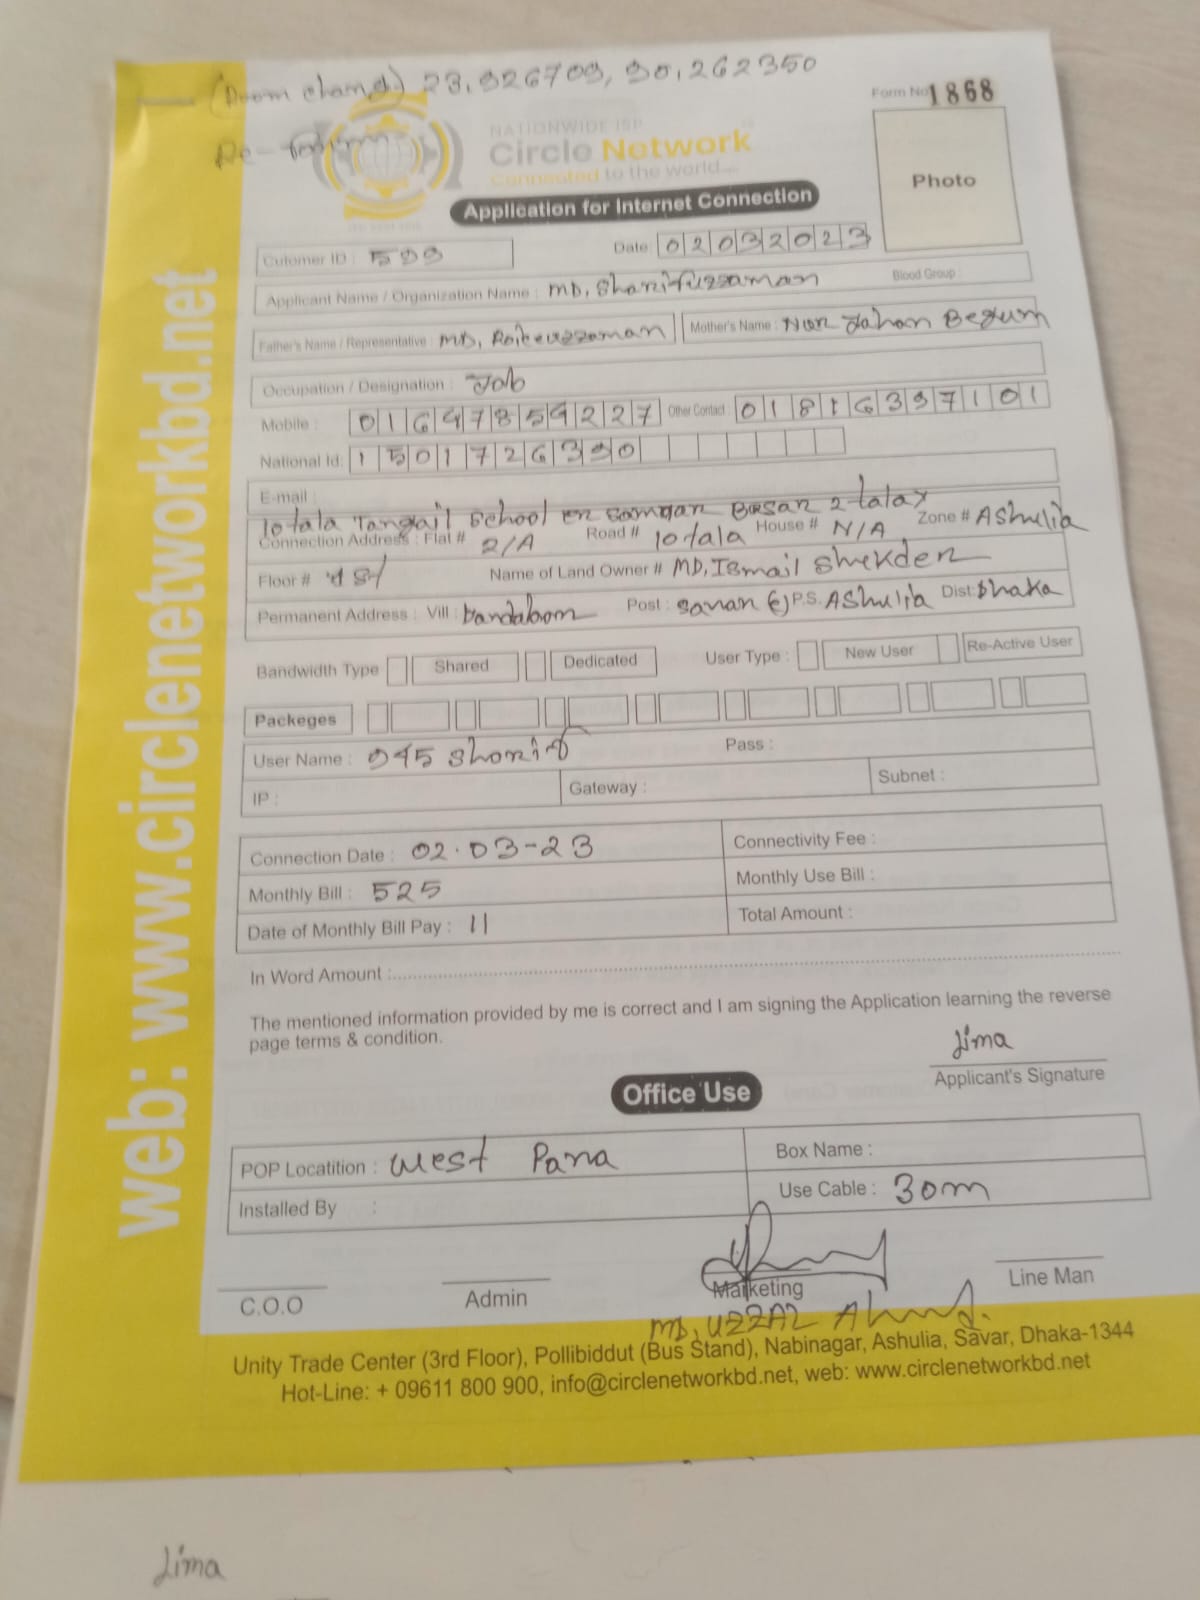 (Room chang.) 23.926709, 90.262350
Form No 1868
Re-
NATIONWIDE ISP
Circle Network
Connected to the world...
Photo
Application for Internet Connection
Cutomer ID : 599
Date 02032023
Applicant Name / Organization Name : MD. Sharifuzzaman
Blood Group :
Father's Name / Representative : MD.
Mother's Name : Nur Jahan Begum
Occupation / Designation : Job
Mobile : 01647859227
Other Contact : 01816397101
National Id: 1501726390
E-mail :
10 tala Tangail School er Basar 2-talay
Connection Address : Flat # 2/A Road # 10 tala House # N/A Zone # Ashulia
Floor # Name of Land Owner # MD. Ismail Shekder
Permanent Address : Vill : Post : P.S. Ashulia Dist: Dhaka
Bandwidth Type Shared Dedicated User Type : New User Re-Active User
Packeges
User Name : 945 Shorif Pass :
IP : Gateway : Subnet :
Connection Date : 02.03-23 Connectivity Fee :
Monthly Bill : 525 Monthly Use Bill :
Date of Monthly Bill Pay : 11 Total Amount :
In Word Amount :
The mentioned information provided by me is correct and I am signing the Application learning the reverse
page terms & condition.
Lima
Applicant's Signature
Office Use
POP Locatition : West Para Box Name :
Installed By : Use Cable : 30m
C.O.O Admin Marketing Line Man
MD. UZZAL Ahmed.
Unity Trade Center (3rd Floor), Pollibiddut (Bus Stand), Nabinagar, Ashulia, Savar, Dhaka-1344
Hot-Line: + 09611 800 900, info@circlenetworkbd.net, web: www.circlenetworkbd.net
web: www.circlenetworkbd.net
Lima